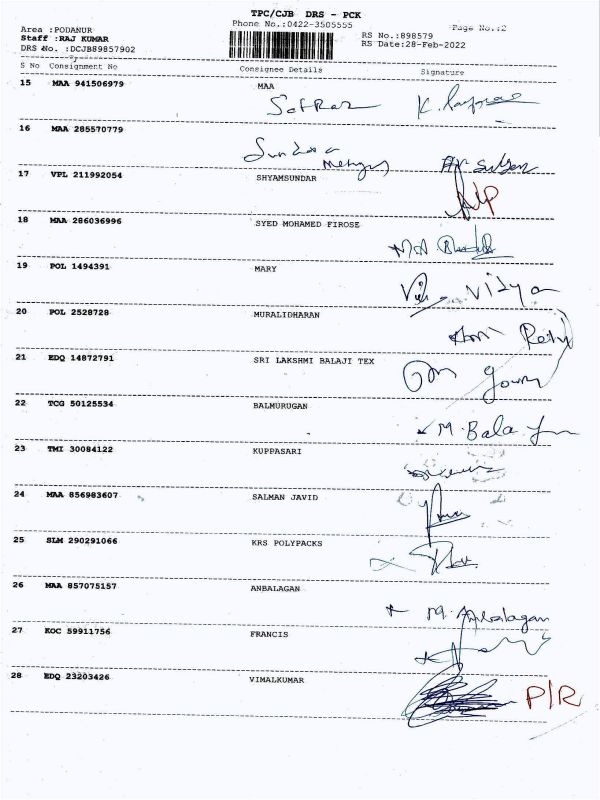 TPC/CJB DRS - PCK
Phone No.:0422-3505555
Page No.:2
Area :PODANUR
Staff :RAJ KUMAR
DRS No. :DCJB89857902
RS No.:898579
RS Date:28-Feb-2022
S No Consignment No Consignee Details Signature
15 MAA 941506979 MAA
16 MAA 285570779
17 VPL 211992054 SHYAMSUNDAR
18 MAA 286036996 SYED MOHAMED FIROSE
19 POL 1494391 MARY
Vidya
20 POL 2528728 MURALIDHARAN
21 EDQ 14872791 SRI LAKSHMI BALAJI TEX
22 TCG 50125534 BALMURUGAN
M. Bala
23 TMI 30084122 KUPPASARI
24 MAA 856983607 SALMAN JAVID
25 SLM 290291066 KRS POLYPACKS
26 MAA 857075157 ANBALAGAN
M. Anbalagan
27 KOC 59911756 FRANCIS
28 EDQ 23203426 VIMALKUMAR
P/R